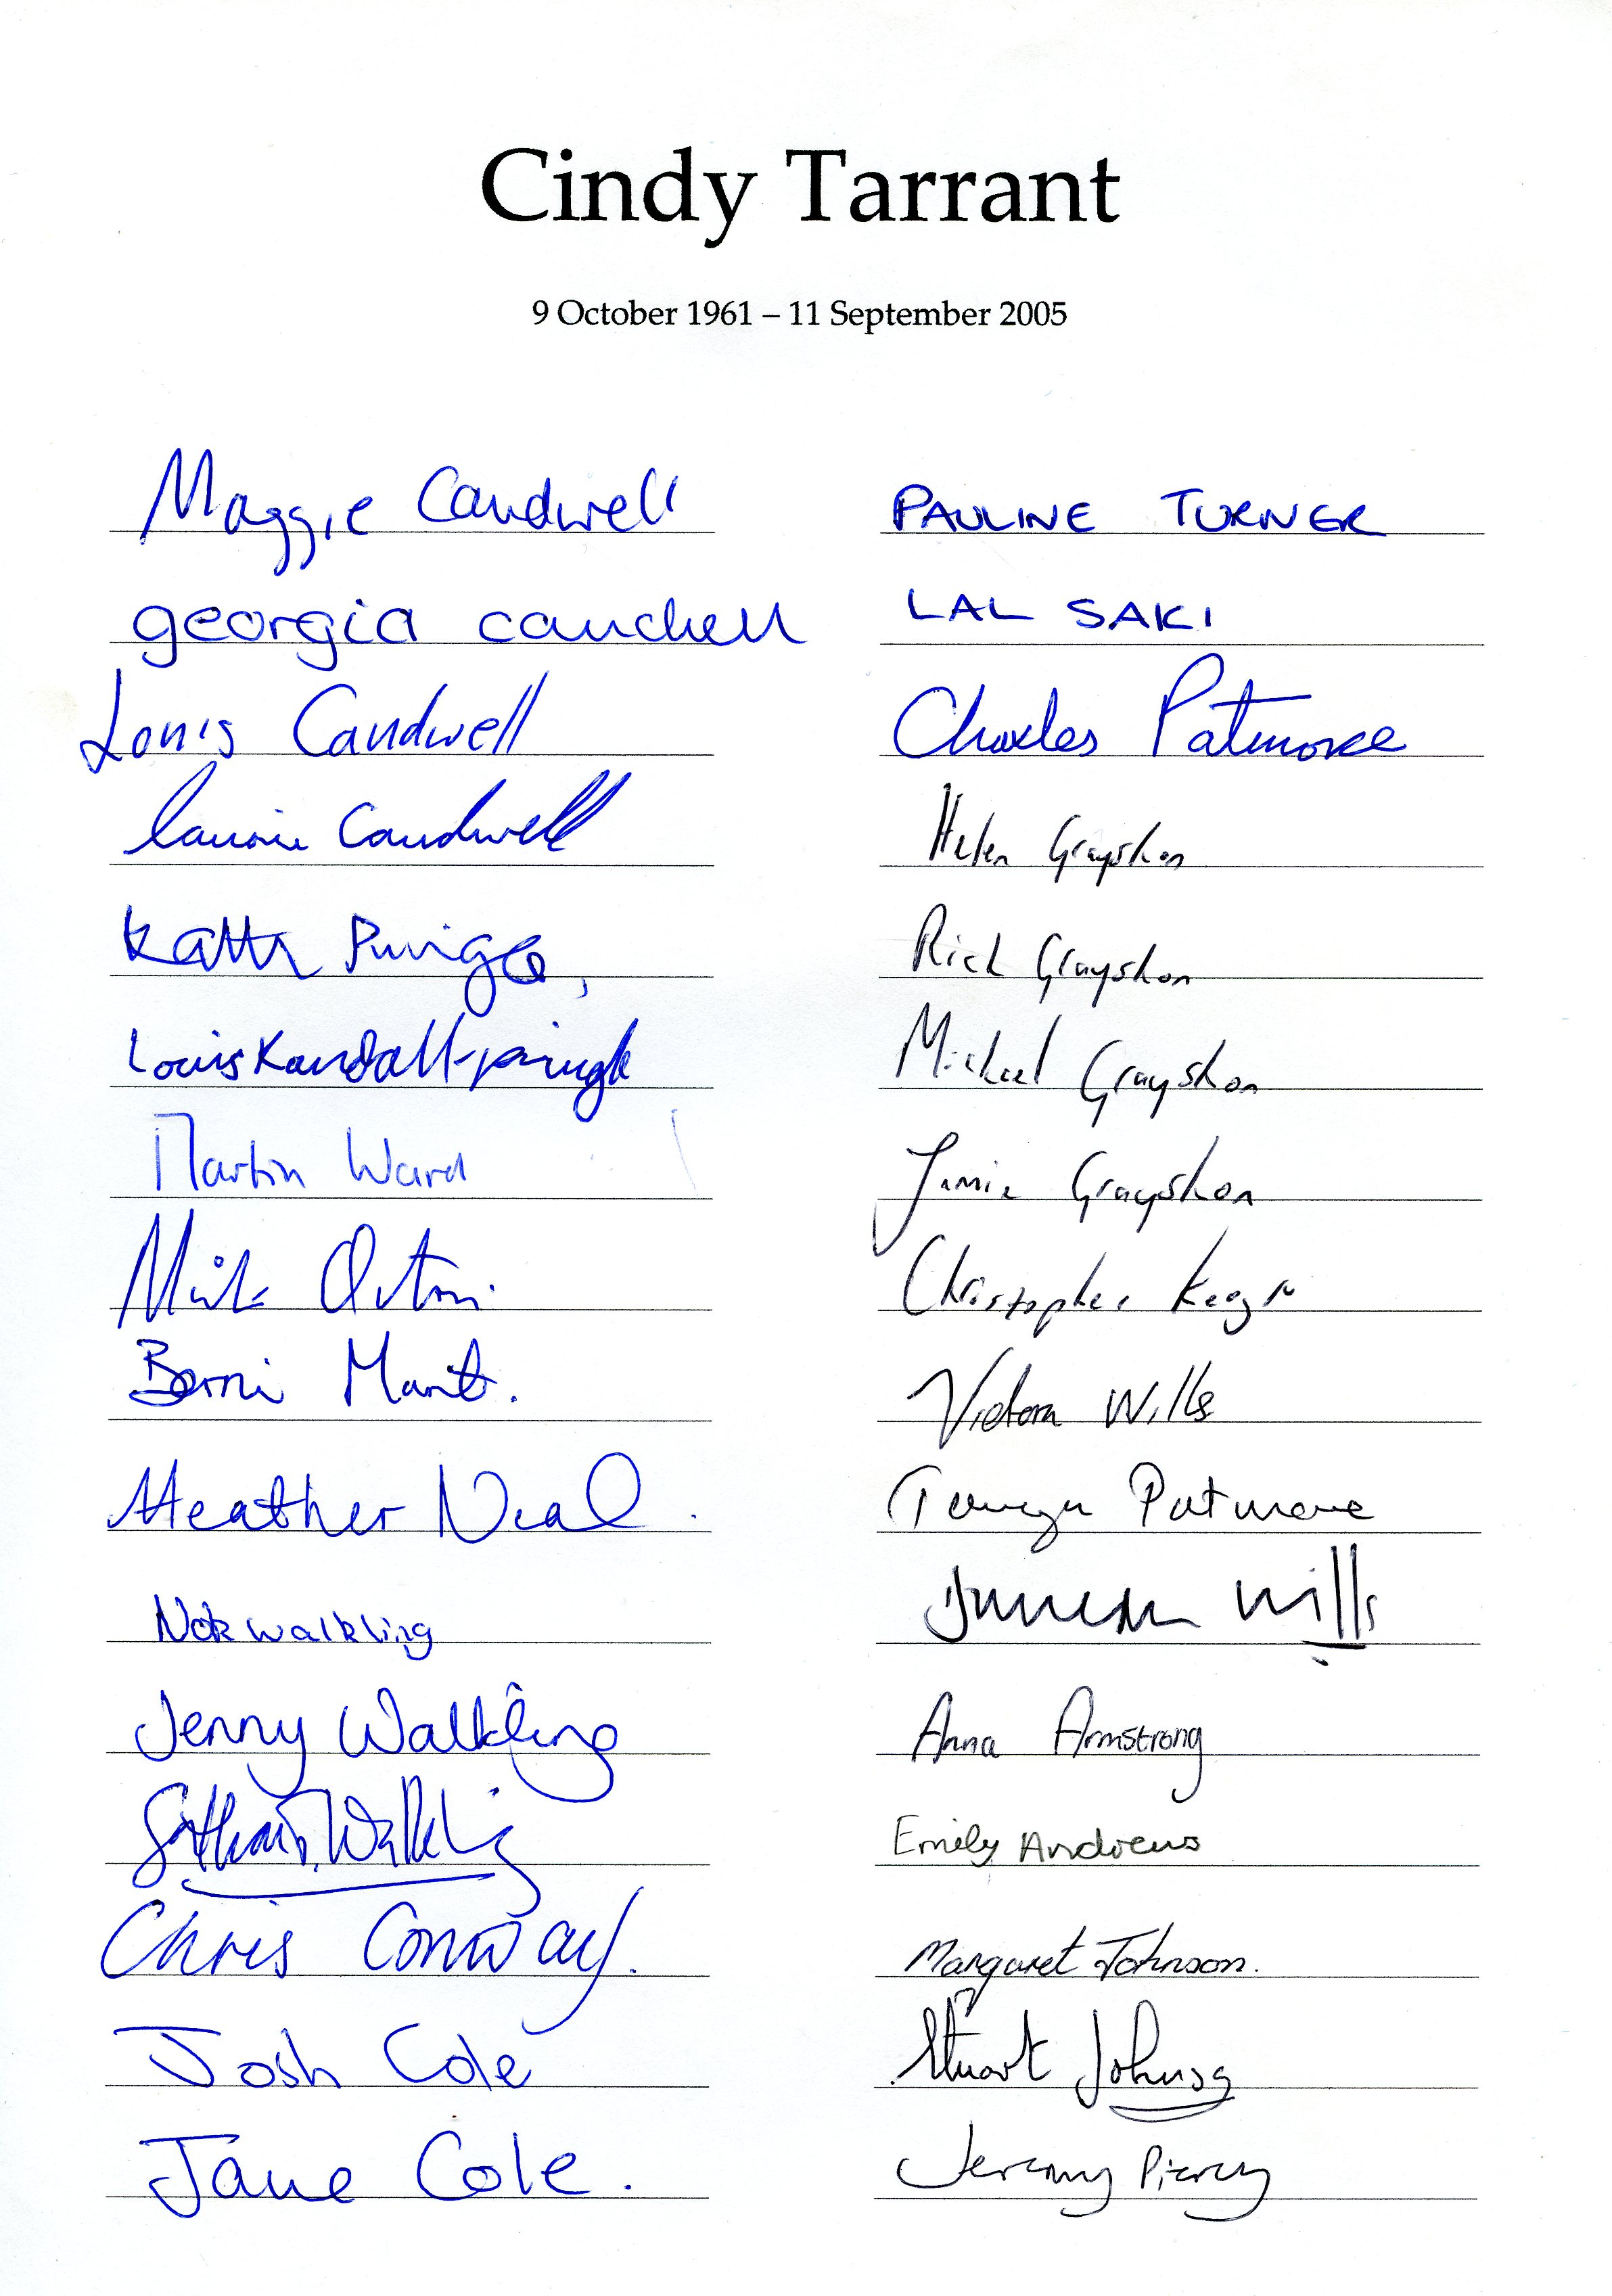 Cindy Tarrant
9 October 1961 – 11 September 2005
Maggie Caudwell
georgia caudwell
Louis Caudwell
Laurie Caudwell
Kath Pringle
Louis Kandall-pringle
Martin Ward
Mick Orton
Berni
Heather Neal.
Nok walkling
Jenny Walkling
Walkling
Chris Conway.
Josh Cole
Jane Cole.
PAULINE TURNER
LAL SAKI
Charles Patmore
Helen Grayshon
Rich Grayshon
Michael Grayshon
Jamie Grayshon
Christopher
Victoria Wills
Patmore
Duncan Wills
Anna Armstrong
Emily Andrews
Margaret Johnson.
Stuart Johnson
Jeremy Piercy